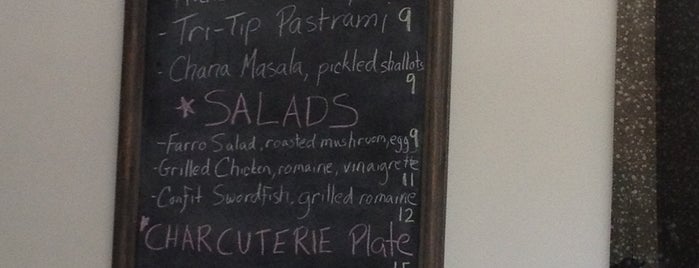 - Tri-Tip Pastrami 9
- Chana Masala, pickled shallots
9
* SALADS
- Farro Salad, roasted mushroom, egg 9
- Grilled Chicken, romaine, vinaigrette
11
- Confit Swordfish, grilled romaine
12
* CHARCUTERIE Plate
15